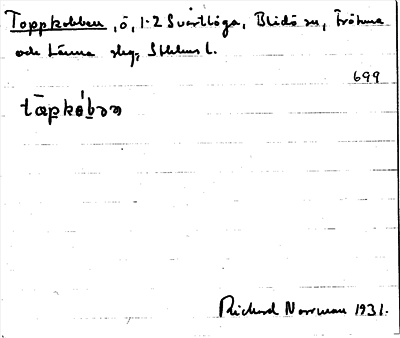 Toppkobben, ö, 1-2 Svartlöga, Blidö sn, Frötuna
och Länna slg, Sthlms l.
699
tåpkóbən
Richard Norrman 1931.